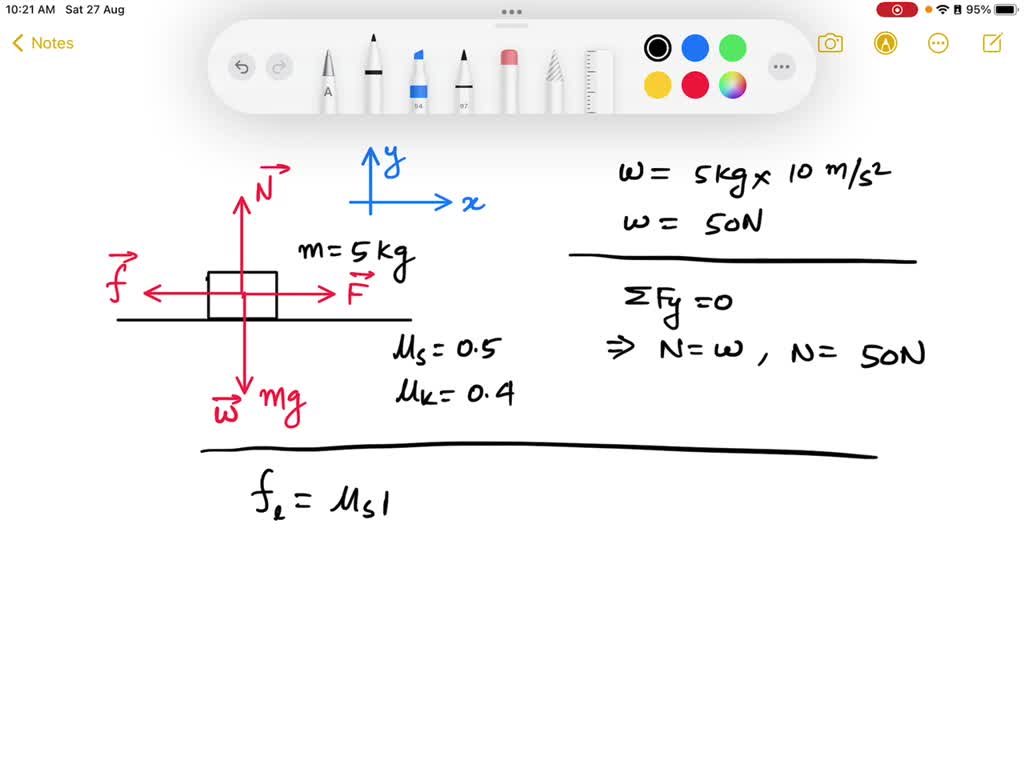 10:21 AM Sat 27 Aug
95%
Notes
A
54
97
N⃗
y
x
m = 5 kg
f⃗
F⃗
μs = 0.5
μk = 0.4
w⃗ mg
w = 5kg × 10 m/s²
w = 50N
ΣFy = 0
⇒ N = w , N = 50N
fl = μs l